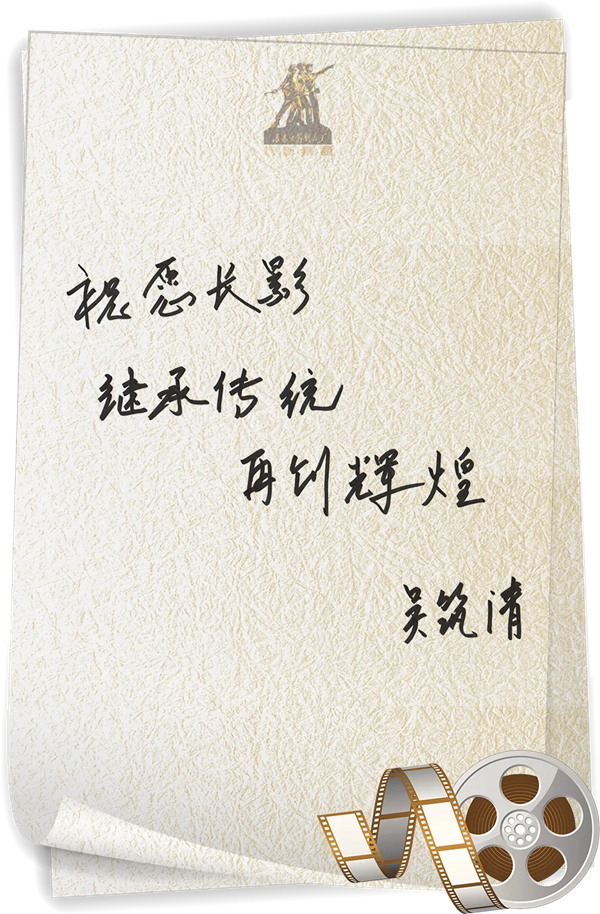 祝愿长影
继承传统
再创辉煌
吴筑清